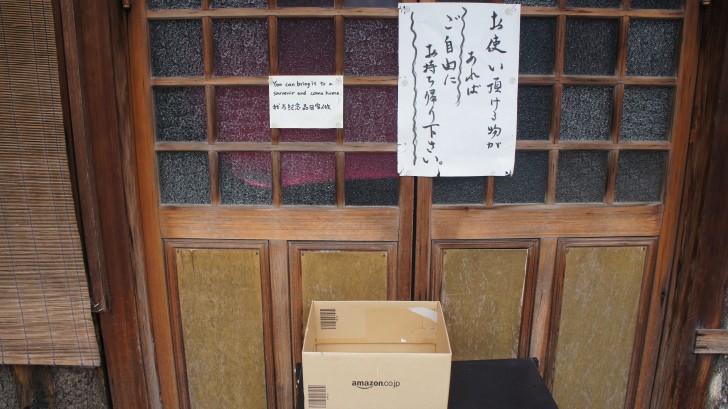 お使い頂ける物が
あれば
ご自由に
お持ち帰り下さい。
You can bring it to a
souvenir and come home
amazon.co.jp